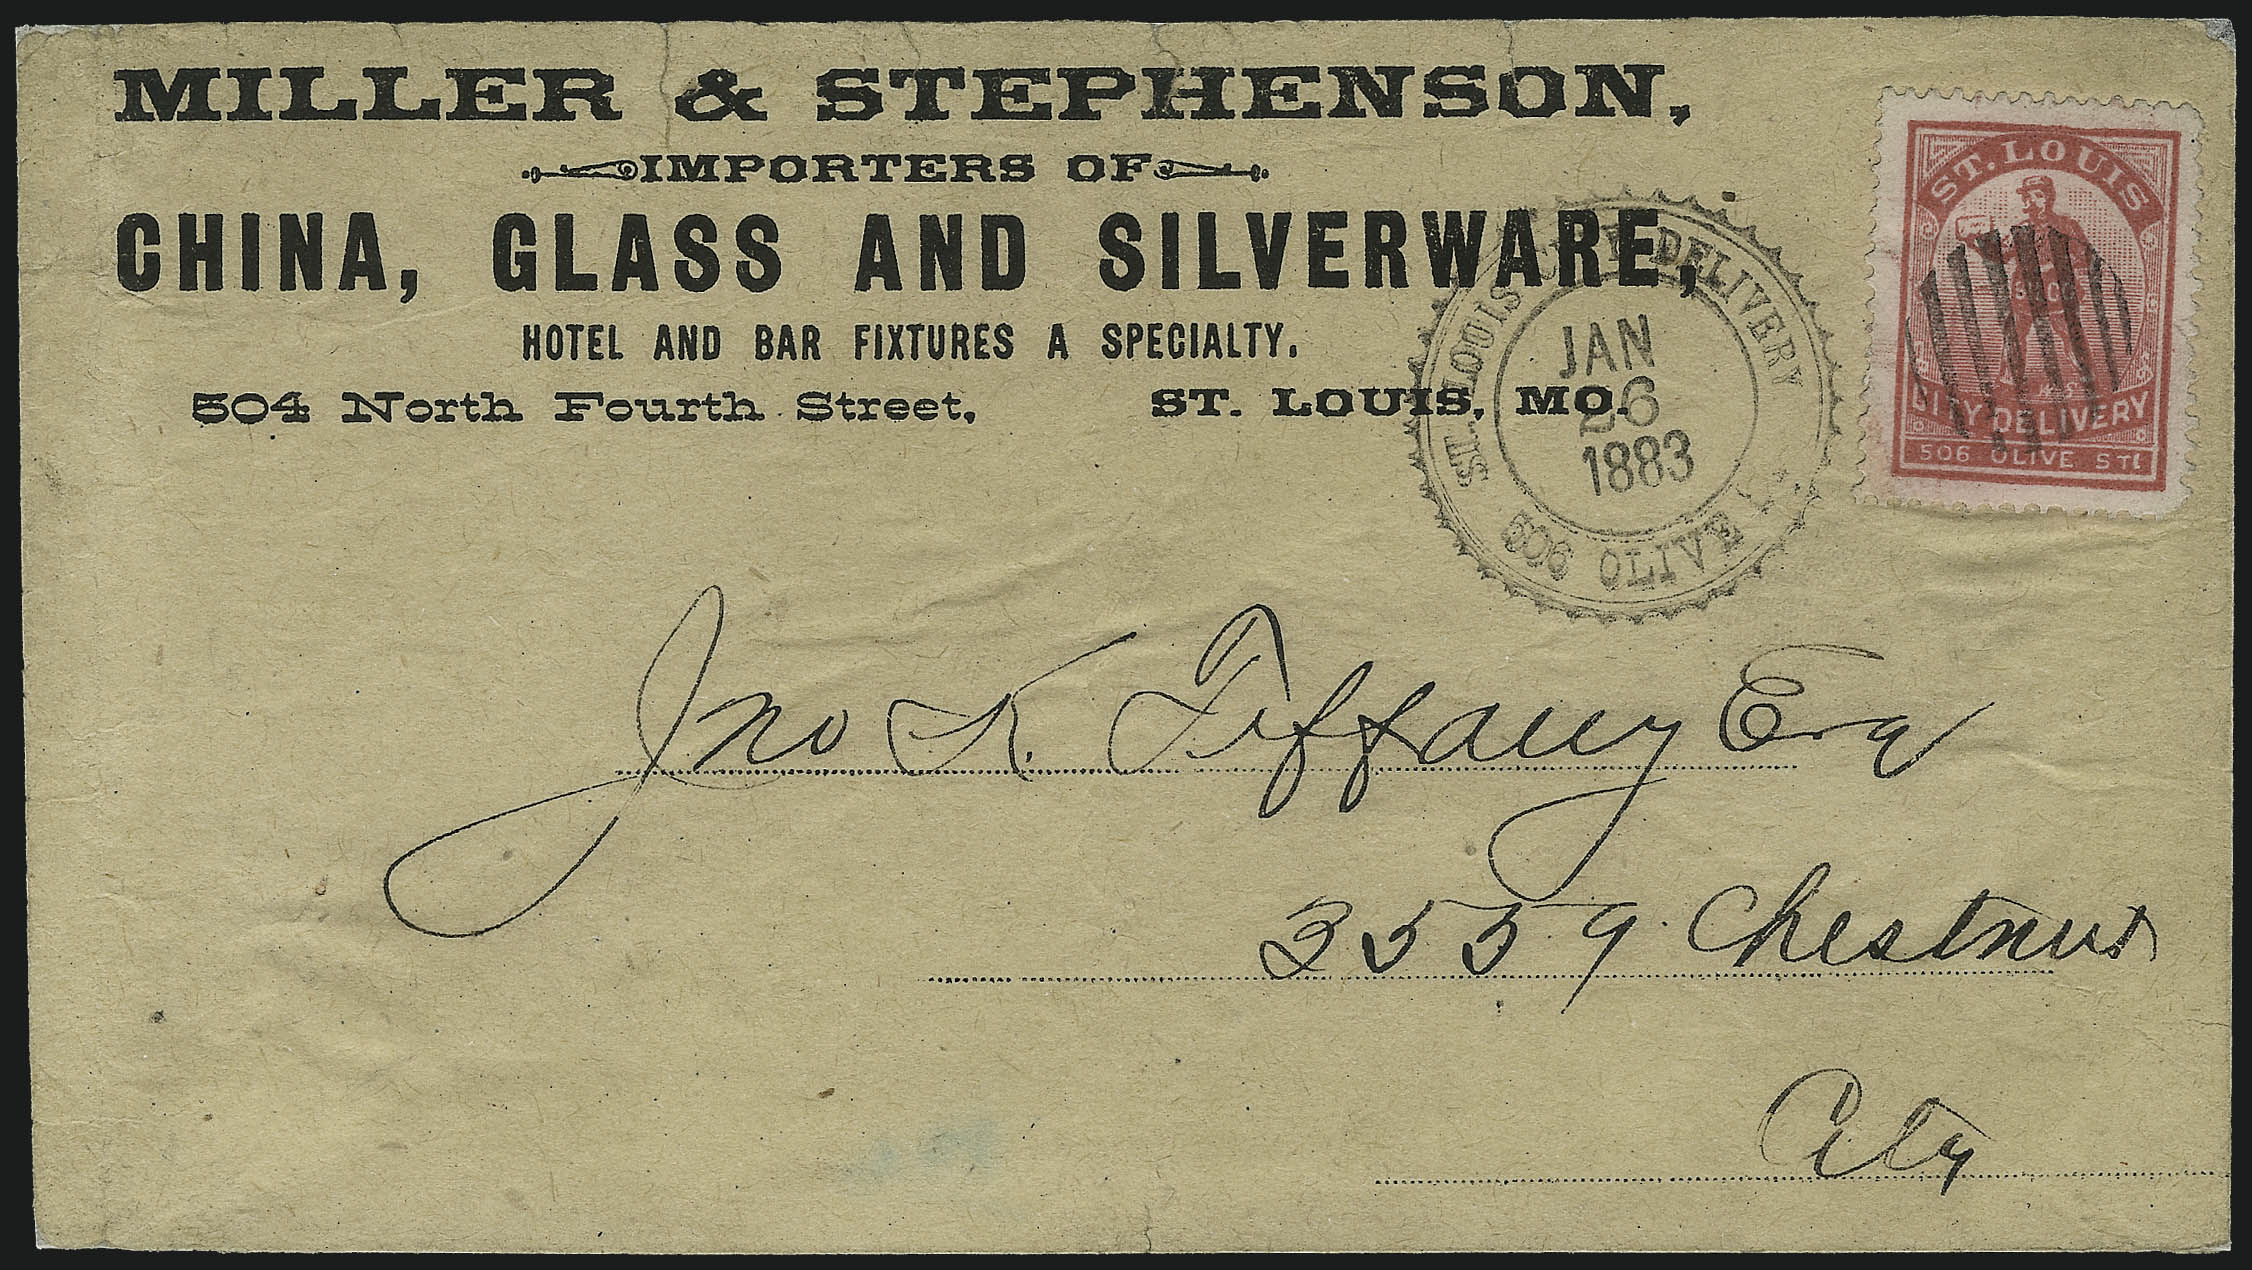 MILLER & STEPHENSON,
IMPORTERS OF
CHINA, GLASS AND SILVERWARE,
HOTEL AND BAR FIXTURES A SPECIALTY.
504 North Fourth Street, ST. LOUIS, MO.
ST. LOUIS CITY DELIVERY
JAN
26
1883
506 OLIVE
ST. LOUIS
CITY DELIVERY
506 OLIVE ST
Jno K. Tiffany Esq
3559 Chestnut
City